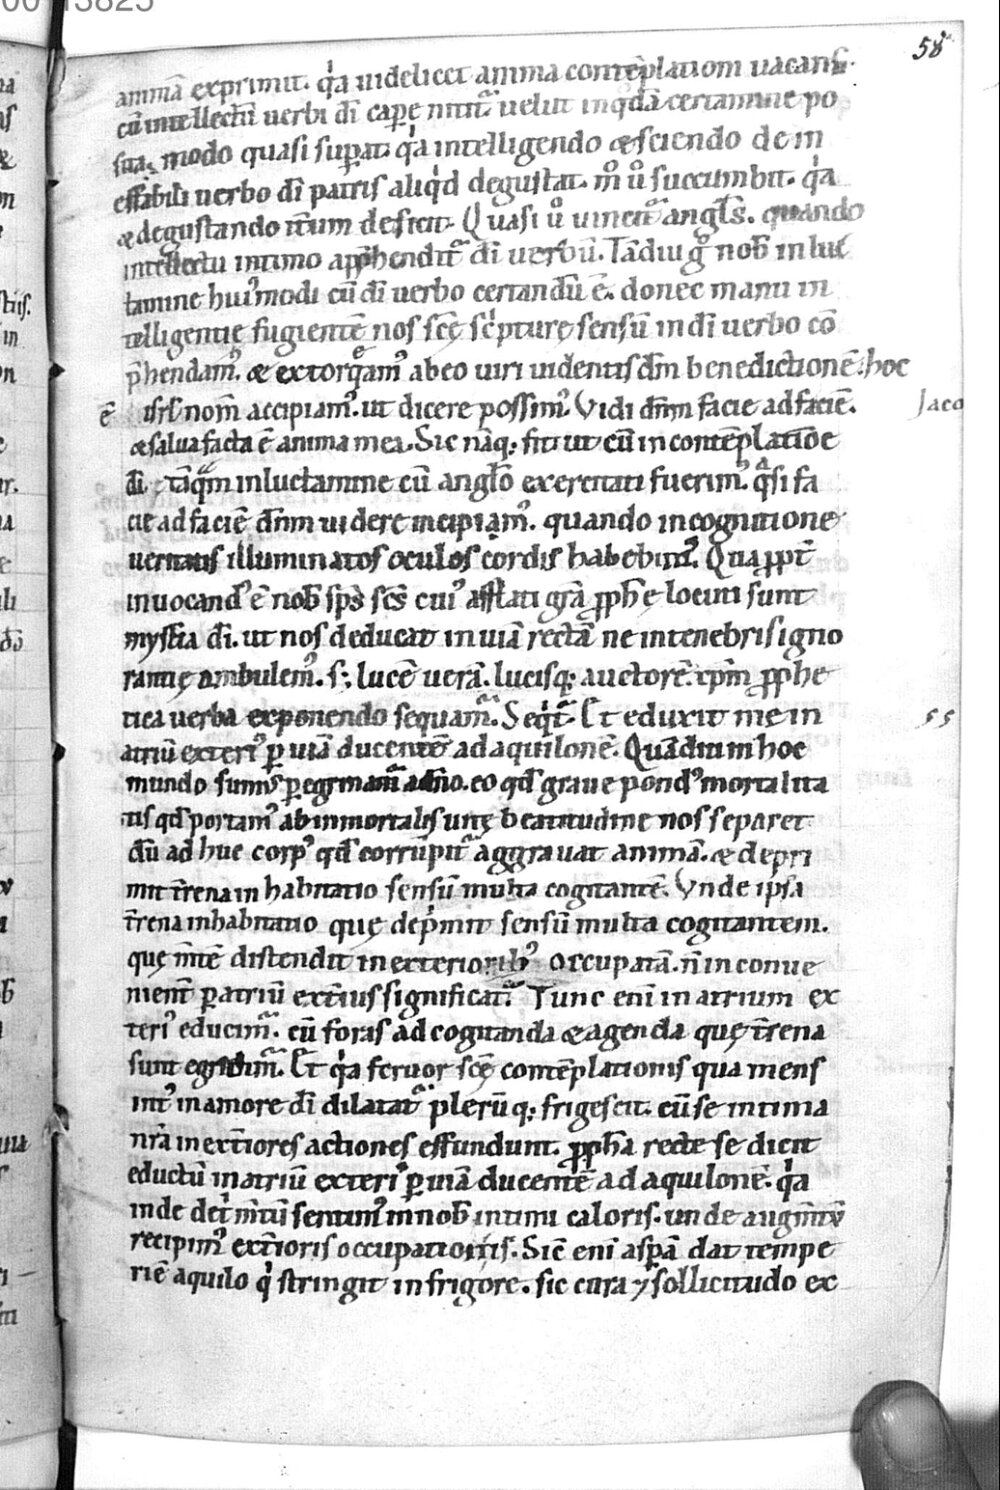 58
animā exprimit. q̓a uidelicet anima contēplationi uacans
cū intellectū uerbi dī capere nititur uelut in q̓dā certamine po
sita, modo quasi superat. q̓a intelligendo & sciendo de in
effabili uerbo dī patris aliq̓d degustat. m̊ ů succumbit. q̓a
& degustando iterum deficit. Quasi ů uincitur angl̄s. quando
intellectu intimo app̄hendit᷑ dī uerbū. Tādiu g̊ nob̄ in luc
tamine huiꝰmodi cū dī uerbo certandū ē. donec manu in
telligentię fugientē nos scē sc̓pturę sensū in dī uerbo cō
p̄hendamꝰ. & extorq̄amꝰ ab eo uiri uidentis dm̄ benedictionē: hoc
ē isrl̄ nom̄ accipiamꝰ. ut dicere possimꝰ. Vidi dn̄m facie ad faciē.
Jaco
& salua facta ē anima mea. Sic nāq; fit ut cū in contēplatiōe
dī, tāq̄m in luctamine cū anglo exercitati fuerimꝰ. q̓si fa
cie ad faciē dn̄m uidere incipiamꝰ. quando in cognitione
ueritatis illuminatos oculos cordis habebimꝰ. Quapropt̄
inuocandꝰ ē nob̄ sp̄s sc̄s cuiꝰ afflati gr̄a ꝓph̄ę locuti sunt
mystia dī. ut nos deducat in uiā rectā ne in tenebris igno
rantię ambulemꝰ. s; lucē uerā. lucisq; auctorē. xp̄m ꝓphe
tica uerba exponendo sequam᷑. Seq̓t᷑. Et eduxit me in
55
atriū exteriꝰ ꝑ uiā ducentē ad aquilonē. Quādiu in hoc
mundo sumꝰ ꝑegrinam᷑ a dn̄o. eo qd̄ graue pondꝰ mortalita
tis qd̄ portamꝰ ab inmortalis uitę beatitudine nos separet
dū ad huc corpꝰ qd̄ corrūpit᷑ aggrauat animā. & depri
mit t̄rena inhabitatio sensū multa cogitantē. Vnde ipsa
t̄rena inhabitatio quę dep̓mit sensū multa cogitantem.
quę mt̄ē distendit in exterioribꝰ occupatā. n̄ inconue
nient̄ ꝑ atriū ext̄ius significat᷑. Tunc enī in atrium ex
teriꝰ educim᷑. cū foras ad cogitanda & agenda quę t̄rena
sunt egredim᷑. Et q̓a feruor scę contēplationis qua mens
int̓ in amore dī dilatat᷑. plerūq; frigescit. cū se intima
nr̄a in ext̄iores actiones effundunt. ꝓph̄a recte se dicit
eductū in atriū exteriꝰ ꝑ uiā ducentē ad aquilonē. q̓a
inde det̓m̄tū sentimꝰ in nob̄ intimi caloris. unde augm̄tū
recipimꝰ ext̄ioris occupationis. Sic enī aspā dat tempe
riē aquilo q̓ stringit in frigore. sic cura ⁊ sollicitudo ex